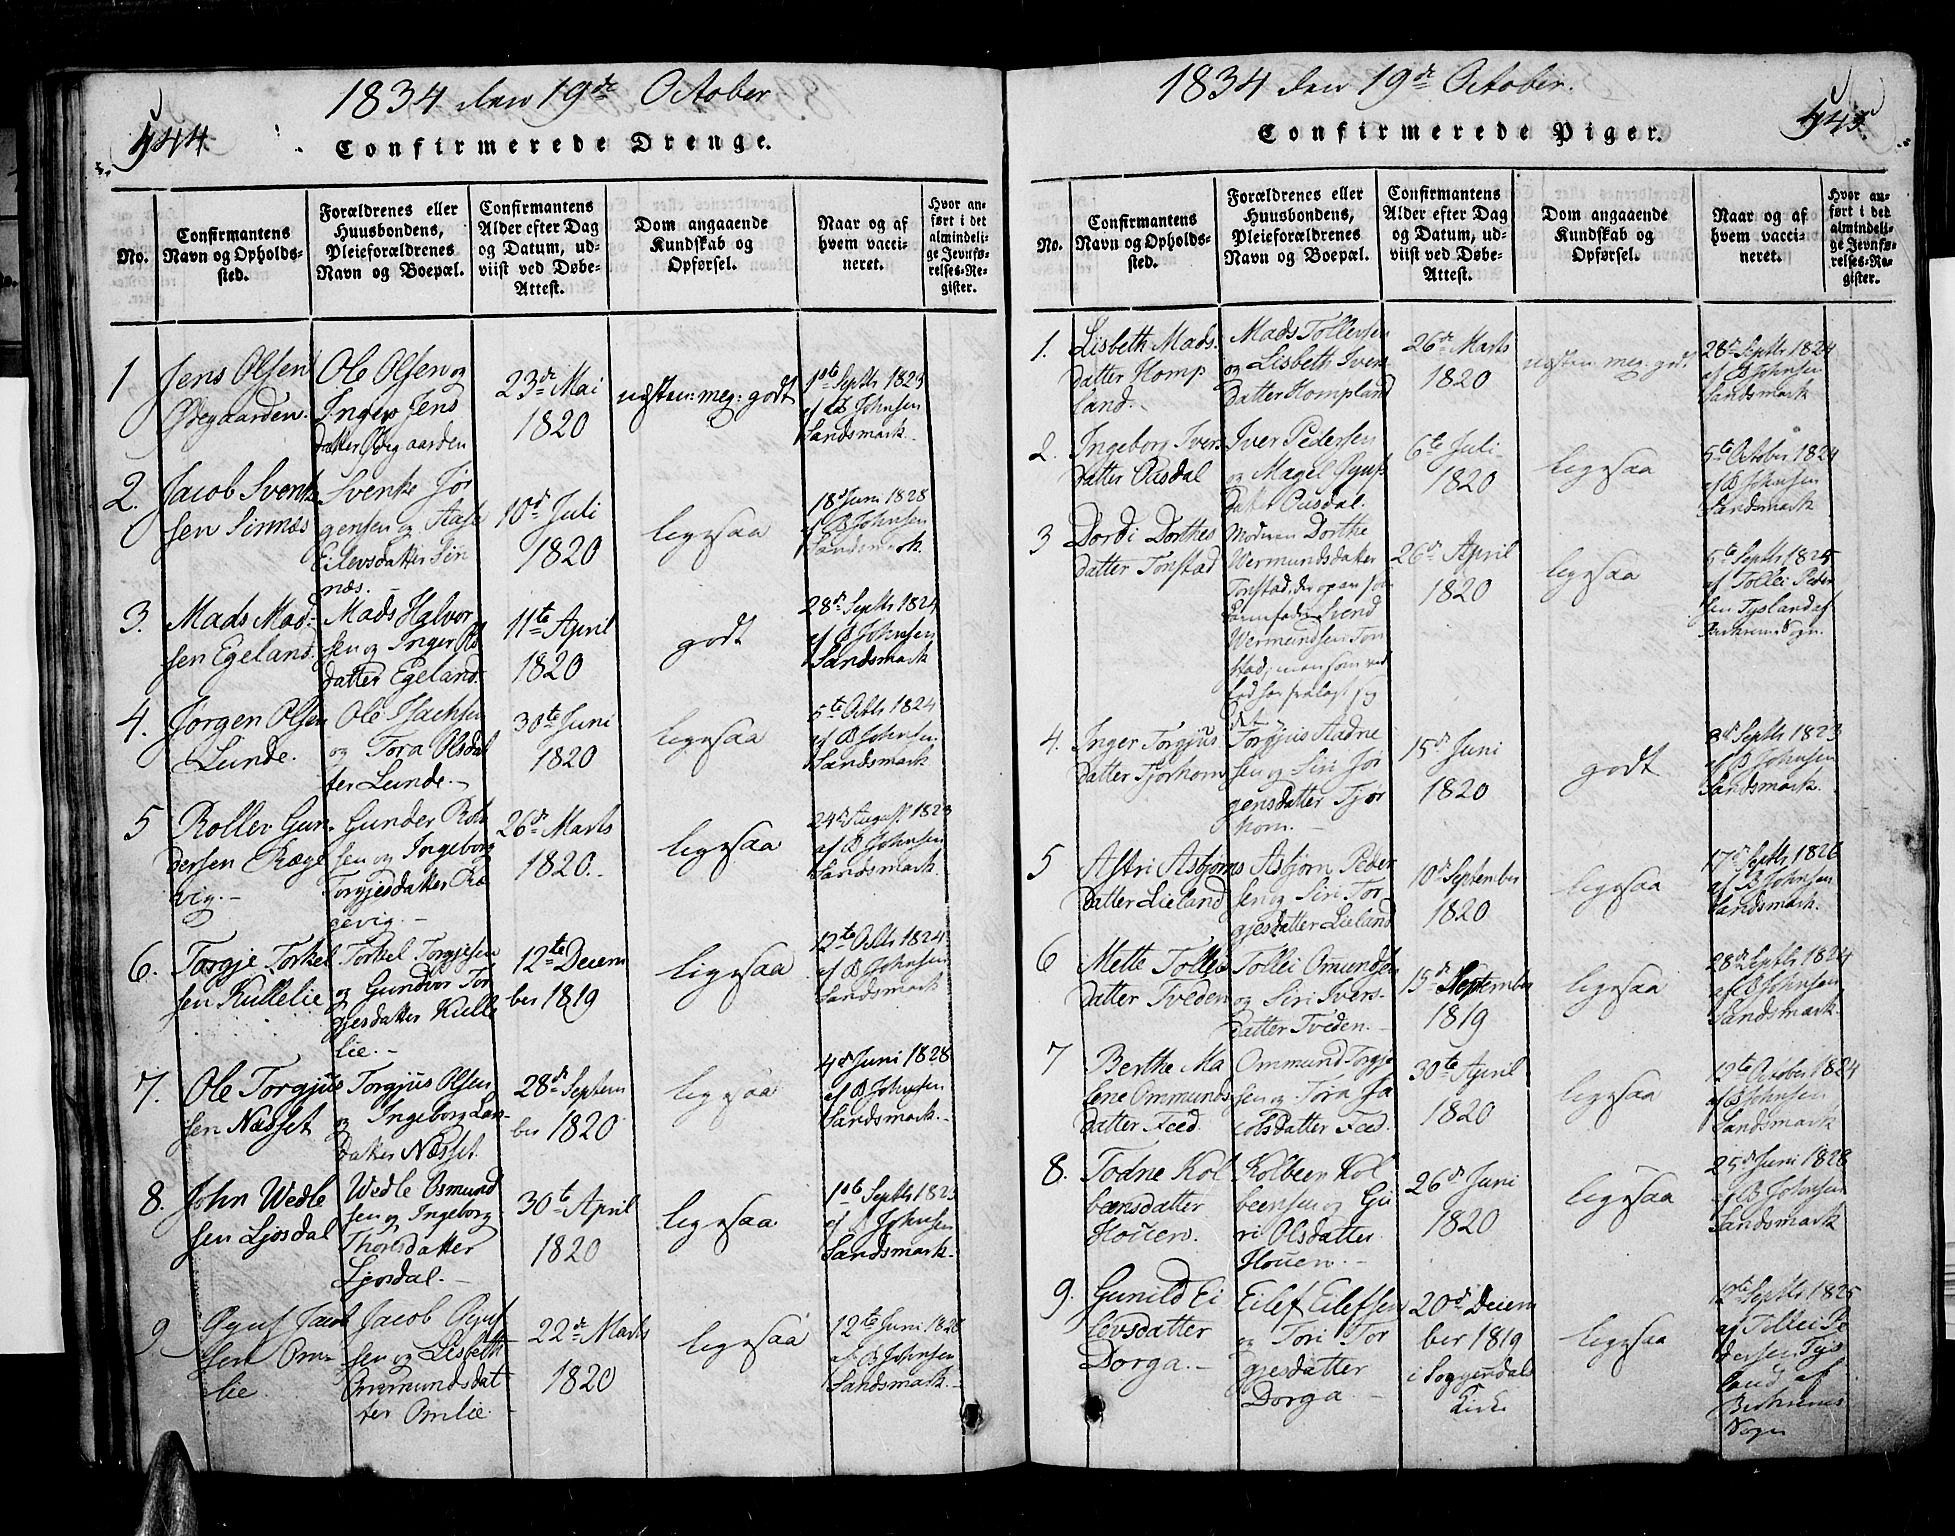 1834 den 19de October
544
Confirmerede Drenge.
No.
Confirmantens
Navn og Opholds-
sted.
Forældrenes eller
Huusbondens,
Pleieforældrenes
Navn og Boepæl.
Confirmantens
Alder efter Dag
og Datum, ud-
viist ved Døbe-
Attest.
Dom angaaende
Kundskab og
Opførsel.
Naar og af
hvem vacci-
neret.
Hvor an-
ført i det
almindeli-
ge Jevnfø-
relses-Re-
gister.
1
Jens Olsen
Ødegaarden.
Ole Olsen og
Inger Jens
datter Ødegaarden
23de Mai
1820
næsten meg: godt
1ste Septbr 1823
af B Johnsen
Sandsmark.
2.
Jacob Svenk
sen Sirnæs
Svenke Jør
gensen og Aase
Eilevsdatter Sir
næs.-
10de Juli
1820
ligesaa
18de Juni 1828
af B Johnsen
Sandsmark.
3.
Mads Mad-
sen Egeland.
Mads Halvor
sen og Inger
datter Egeland
11te April
1820
godt
28de Septbr 1824
af B Johnsen
Sandsmark
4.
Jørgen Olsen
Lunde.
Ole
og Tora Olsdat
ter Lunde.-
30te Juni
1820
ligesaa
5te Octbr 1824
af B Johnsen
Sandsmark
5
Rollev Gun-
dersen Ræge
vig.-
Gunder
sen og Ingeborg
Torgjesdatter Ræ
gevig.-
26de Marts
1820.-
ligesaa
24de August 1823
af B Johnsen
Sandsmark.
6.
Torgje Torkel
sen Kullelie
Torkel Torgjesen
og Gundvor Tor
gjesdatter Kielle
lie.-
12te Decem
ber 1819
ligesaa
12te Octbr 1824
af B Johnsen
Sandsmark
7.
Ole Torgjus
sen Næsset
Torgjus Olsen
og Ingeborg Lars
datter Næsset.
28de Septem
ber 1820
ligesaa
4de Juni 1828
af B Johnsen
Sandsmark.-
8.
John Wedle
sen Ljosdal
Wedle Osmund
sen og Ingeborg
Thorsdatter
Ljosdal.-
30te April
1820
ligesaa
1ste Septbr 1823
af B Johnsen
Sandsmark.
9
Gyuf Jacob
sen Om-
lie
Jacob Gyuf
sen og Lisbeth
Ommundsdat
ter Omlie.-
22de Marts
1820
ligesaa
12te Juni 1828
af B Johnsen
Sandsmark.-
1834 den 19de October.
545
Confirmerede Piger.
No.
Confirmantens
Navn og Opholds-
sted.
Forældrenes eller
Huusbondens,
Pleieforældrenes
Navn og Boepæl.
Confirmantens
Alder efter Dag
og Datum, ud-
viist ved Døbe-
Attest.
Dom angaaende
Kundskab og
Opførsel.
Naar og af
hvem vacci-
neret.
Hvor an-
ført i det
almindeli-
ge Jevnfø-
relses-Re-
gister.
1.
Lisbeth Mads-
datter Homp
land.-
Mads Tollevsen
og Lisbeth Ivers
datter Hompland
26de Marts
1820
næsten meg. godt
28de Septbr 1824
af B Johnsen
Sandsmark
2.
Ingeborg Ivers
datter Ousdal
Iver Pedersen
og Magel Gyufs
datter Ousdal.
6te Juli
1820
ligesaa
5te October 1824
af B Johnsen
Sandsmark
3
Dordi Dorthes
datter Tonstad
Moderen Dorthe
Wermundsdatter
Tonstad, der opgav som
Barnefader Svend
Wermundsen Ton
stad, men som ved
26de April
1820
ligesaa
5te Septbr 1825
af Tollei Peder
sen Tysland af
Sogn.
4.
Inger Torgjus
datter Tjorhom
Torgjus Aadne
sen og Siri Jør
gensdatter Tjor
hom.-
15de Juni
1820
godt
3de Septbr 1823
af B Johnsen
Sandsmark.
5
Astri Asbjørns
datter Lieland
Asbjørn Peder
sen og Siri Tor
gjesdatter Lieland
10de September
1820
ligesaa
17de Septbr 1826
af B Johnsen
Sandsmark.
6
Mette Tollei
datter Tveden
Tollei Omundsen
og Siri Ivers-
datter Tveden.-
15de September
1819
ligesaa
28de Septbr 1824
af B Johnsen
Sandsmark.
7
Berthe Ma
lene Ommunds
datter Fced.
Ommund Torgje
sen og Tora Ja
cobsdatter Fced.
30te April
1820
ligesaa
12te October 1824
af B Johnsen
Sandsmark
8.
Todne Kol
beensdatter
Houen.
Kolbeen Kol
beensen og Gu
ri Olsdatter
Houen.-
26de Juni
1820
ligesaa
25de Juni 1828
af B Johnsen
Sandsmark
9.
Gunild Ei
levsdatter
Dorga.-
Eilef Eilefsen
og Tori Tor
gjesdatter
Dorga.-
20de Decem
ber 1819
i Soggendals
Kirke
ligesaa
Septbr 1825
af Tollei Pe
dersen Tys
land af
Sogn